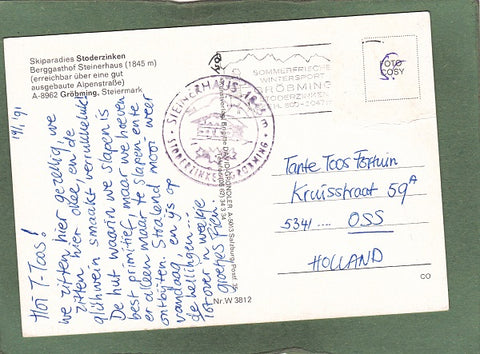 Skiparadies Stoderzinken
Berggasthof Steinerhaus (1845 m)
(erreichbar über eine gut
ausgebaute Alpenstraße)
A-8962 Gröbming, Steiermark
19/1 '91
Hoi T-Toos!
we zitten hier gezellig, we
zitten hier olee, en de
glühwein smaakt verrukkelijk
De hut waarin we slapen is
best primitief, maar we hoeven
er alleen maar te slapen en te
ontbijten. Stralend mooi weer
vandaag, en ijs op
de hellingen...
Tot over 'n weekje
groetjes
STEINERHAUS 1845 m
STODERZINKEN GRÖBMING
SOMMERFRISCHE
WINTERSPORT
GRÖBMING
STODERZINKEN
FOTO
COSY
Tante Toos Fortuin
Kruisstraat 59A
5341 .... OSS
HOLLAND
CO
Nr. W 3812